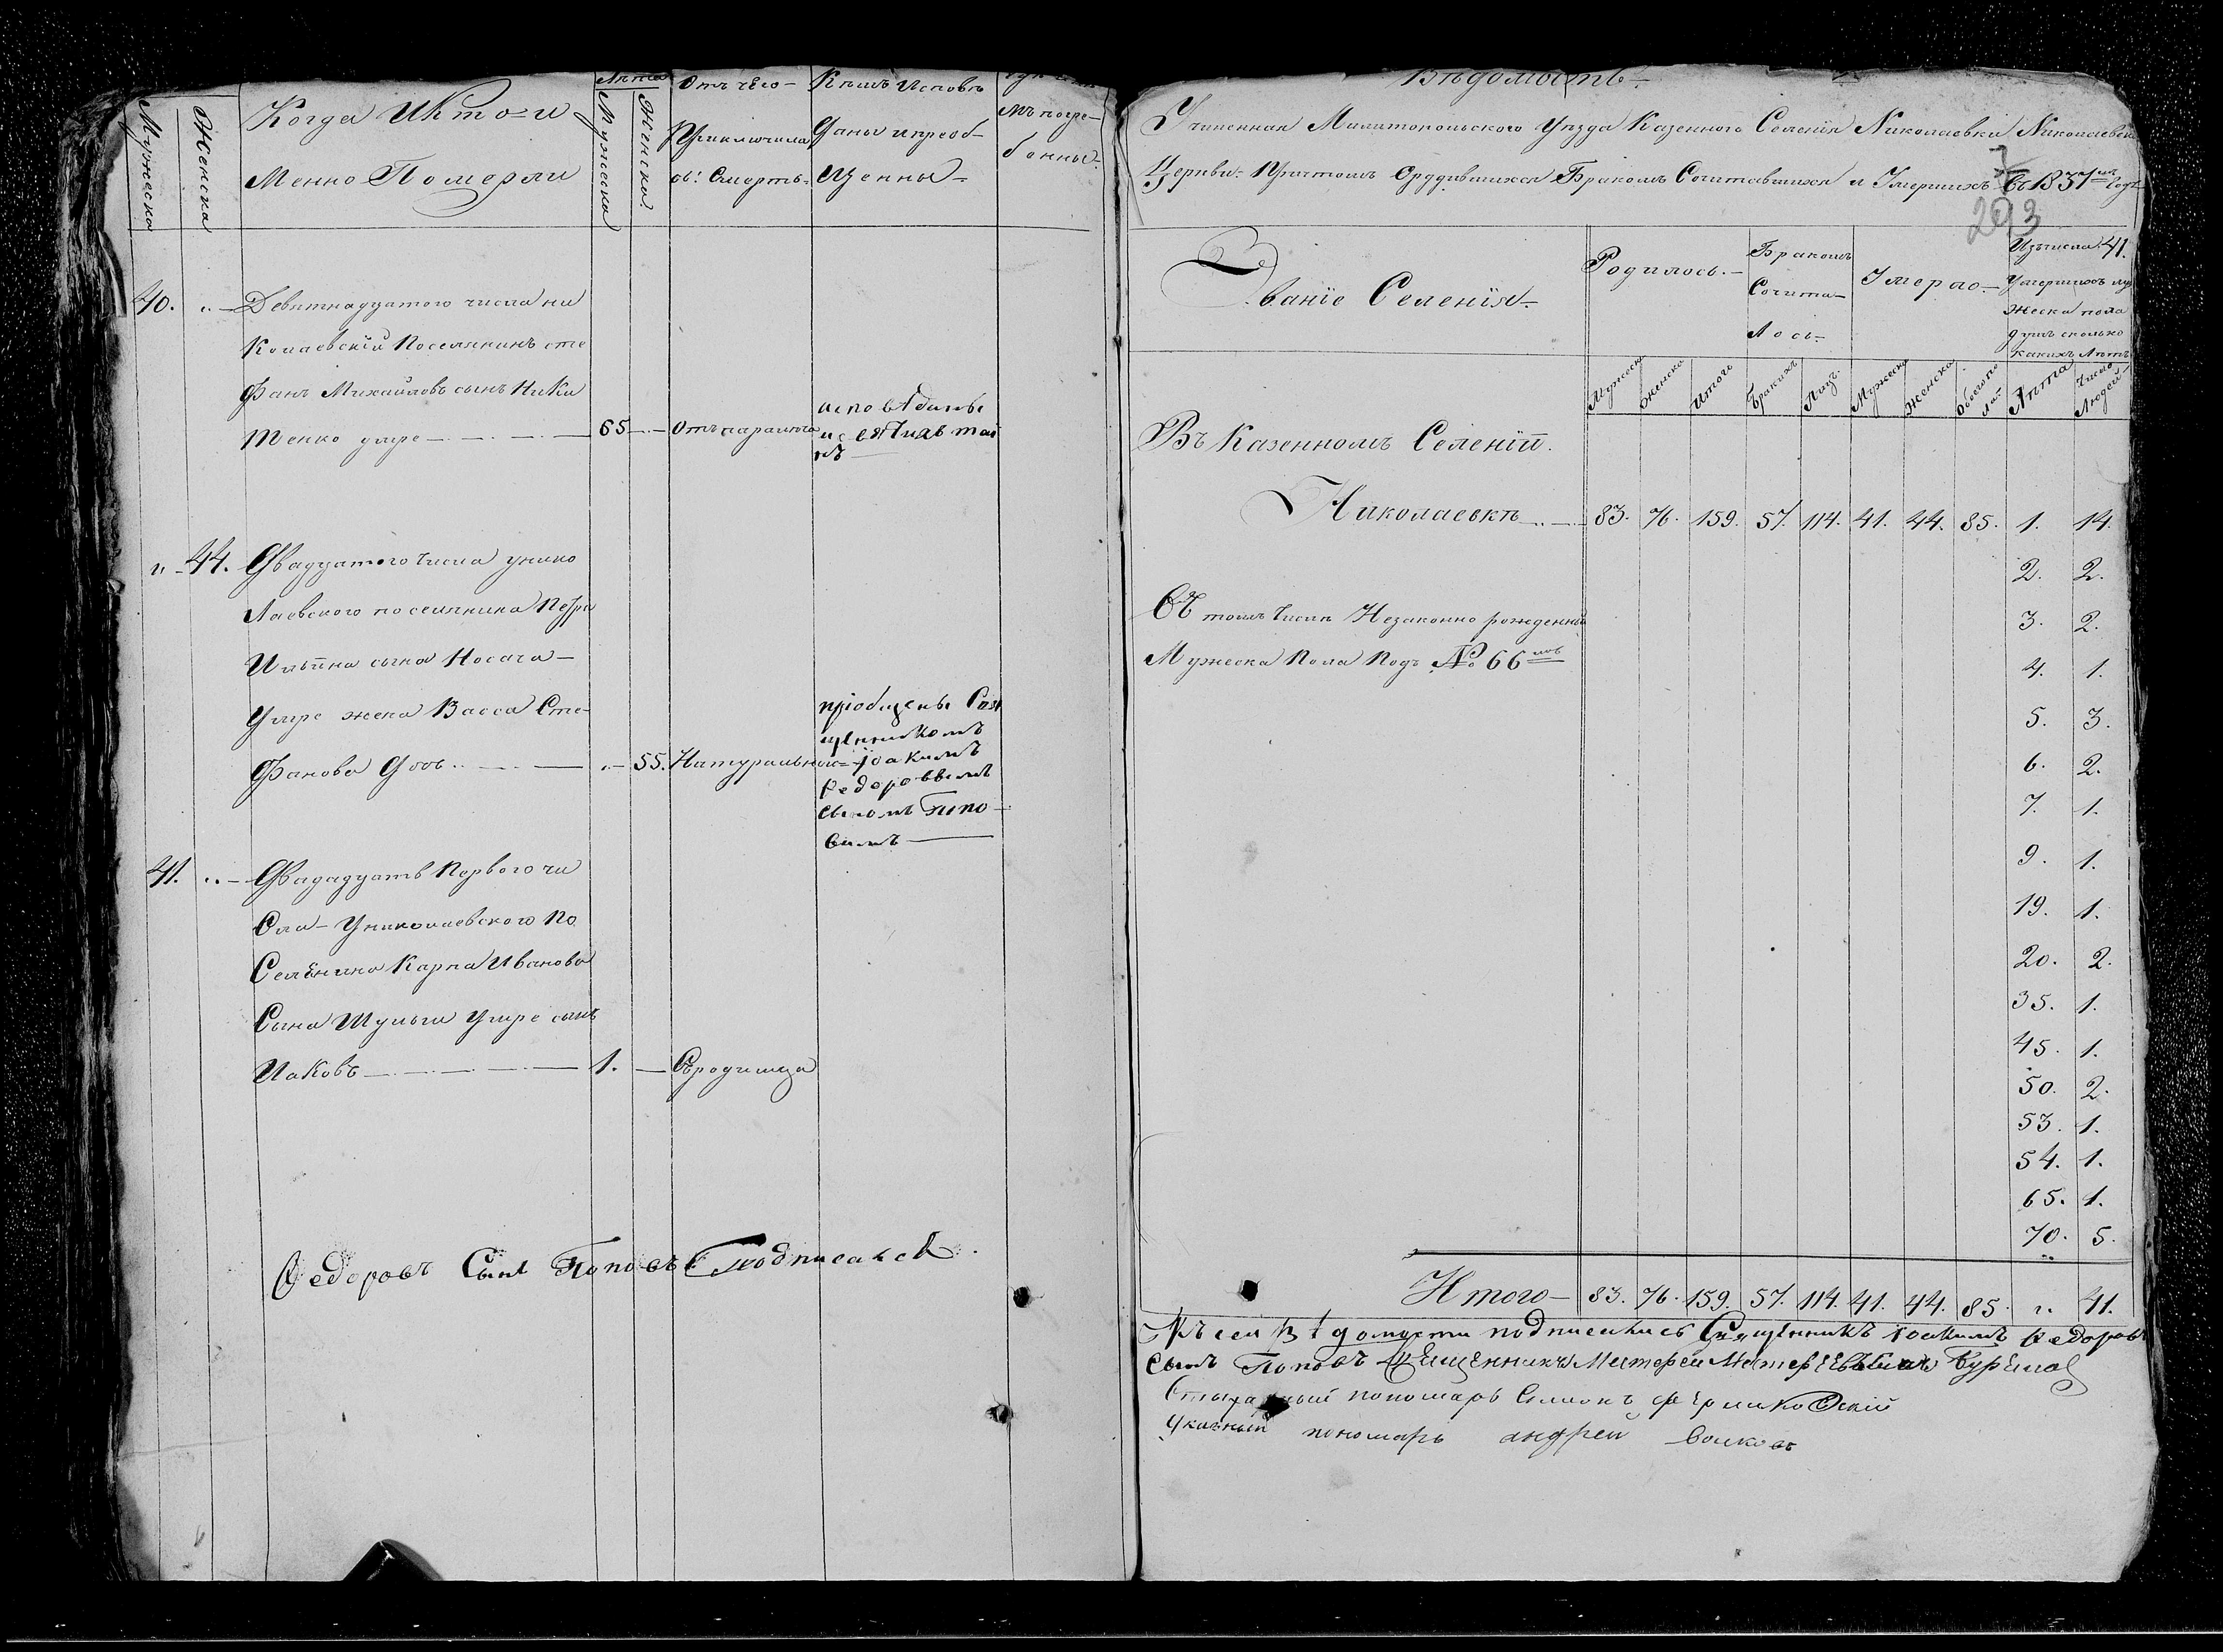 Мужеска
Женска
Когда Икто=и
Менно Померли
Лѣта
Мужеска
Женска
Отъ чего-
Приключила
сь: Смерть-
Кѣмъ Исповѣ
Даны ипреоб-
Щенны-
мъ погре-
бенны-
40. „ - Девятнадцатого числа ни
Колаевскій Поселянинъ сте
Фанъ Михайловъ сынъ Ники
тенко умре - 65 - Отъ паралича
исповѣданъ
и святихъ тай
нъ
„ - 44. Двадцатого числа унико
Лаевского поселянина Петра
Ильина сына Носача-
Умре жена Васса Сте-
Фанова Дочь - „ - 55. Натурально
пріобщены Свя
щенникомъ
Іоакимъ
Федоровымъ
сыномъ Попо-
вымъ
41. „ - Двадцать Первого чи
Сла- Униколаевского По
Селянина Карпа Иванова
Сына Шульги Умре сынъ
Иаковъ - 1. - Сродимца
Федоровъ Сынъ Поповъ подписался.
Вѣдомость-
Учиненная Милитопольского Уѣзда Казенного Селенія Николаевки Николаевск
Церкви- Причтомъ Ородившихся Бракомъ Сочитавшихся и Умершихъ Въ 1837мъ Годѣ
293
Званіе Селенія-
Родилось.-
Бракомъ
Сочита-
Лось-
Умерло-
Изъчисла 41.
Умершихъ му
жеска пола
душъ сколько
какихъ Лѣтъ
Мужеска
Женска
Итого
Бракихъ
Лицъ
Мужеска
Женска
Обоего по
ла
Лѣта
Число
Людей
Въ Казенномъ Селеніи.
Николаевкѣ - 83. 76. 159. 57. 114. 41. 44. 85. 1. 14.
2. 2.
Въ томъ Числѣ Незаконно рожденный
3. 2.
Мужеска Пола Подъ № 66мъ
4. 1.
5. 3.
6. 2.
7. 1.
9. 1.
19. 1.
20. 2.
35. 1.
45. 1.
50. 2.
53. 1.
54. 1.
65. 1.
70. 5.
Итого- 83. 76. 159. 57. 114. 41. 44. 85. „. 41.
Къ сей Вѣдомости подписались Священникъ Іоакимъ Федоровъ
сынъ Поповъ Священникъ
пономарь Симонъ
Указный пономарь андрей волковъ